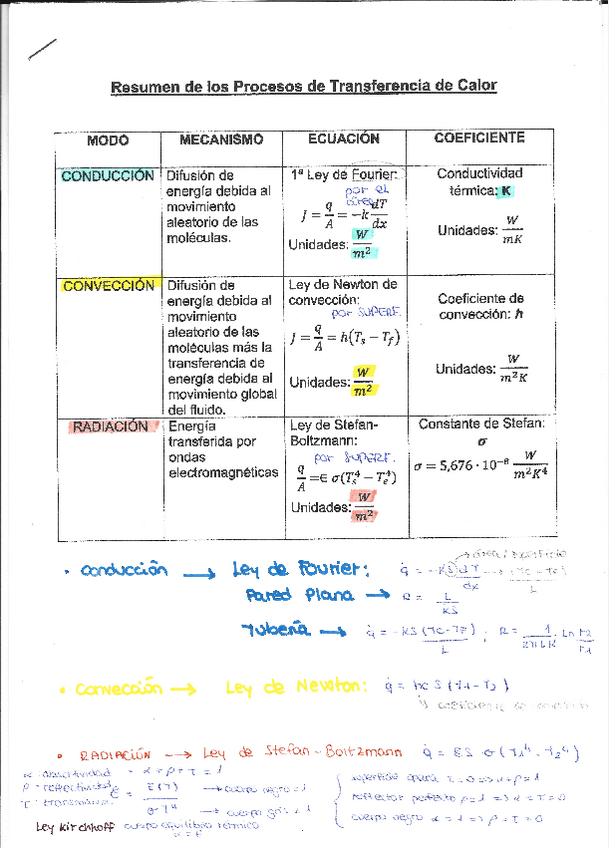 Resumen de los Procesos de Transferencia de Calor
MODO MECANISMO ECUACIÓN COEFICIENTE
CONDUCCIÓN
Difusión de
energía debida al
movimiento
aleatorio de las
moléculas.
1ª Ley de Fourier:
por el
área
J = q/A = -k dT/dx
Unidades: W/m²
Conductividad
térmica: K
Unidades: W/mK
CONVECCIÓN
Difusión de
energía debida al
movimiento
aleatorio de las
moléculas más la
transferencia de
energía debida al
movimiento global
del fluido.
Ley de Newton de
convección:
por SUPERF.
J = q/A = h(Ts − Tf)
Unidades: W/m²
Coeficiente de
convección: h
Unidades: W/m²K
RADIACIÓN
Energía
transferida por
ondas
electromagnéticas
Ley de Stefan-
Boltzmann:
por SUPERF.
q/A =∈ σ(Ts⁴ − Te⁴)
Unidades: W/m²
Constante de Stefan:
σ
σ = 5,676 · 10⁻⁸ W/m²K⁴
• Conducción → Ley de Fourier: q̇ = -KS dT/dx
Pared Plana → R = L/KS
Tubería → q̇ = -KS (TC-TF)/L ; R = 1/2πLK · Ln r2/r1
• Convección → Ley de Newton: q̇ = hc S (T1-T2)
• RADIACIÓN → Ley de Stefan-Boltzmann q̇ = ES σ (T1⁴ - T2⁴)
α: absortividad - α + ρ + τ = 1
ρ: reflectividad
E(T)/σT⁴ → cuerpo negro = 1
→ cuerpo gris
superficie opaca τ = 0 => α + ρ = 1
reflector perfecto ρ = 1 => α = τ = 0
cuerpo negro α = 1 => ρ = τ = 0
Ley Kirchhoff cuerpo equilibrio térmico